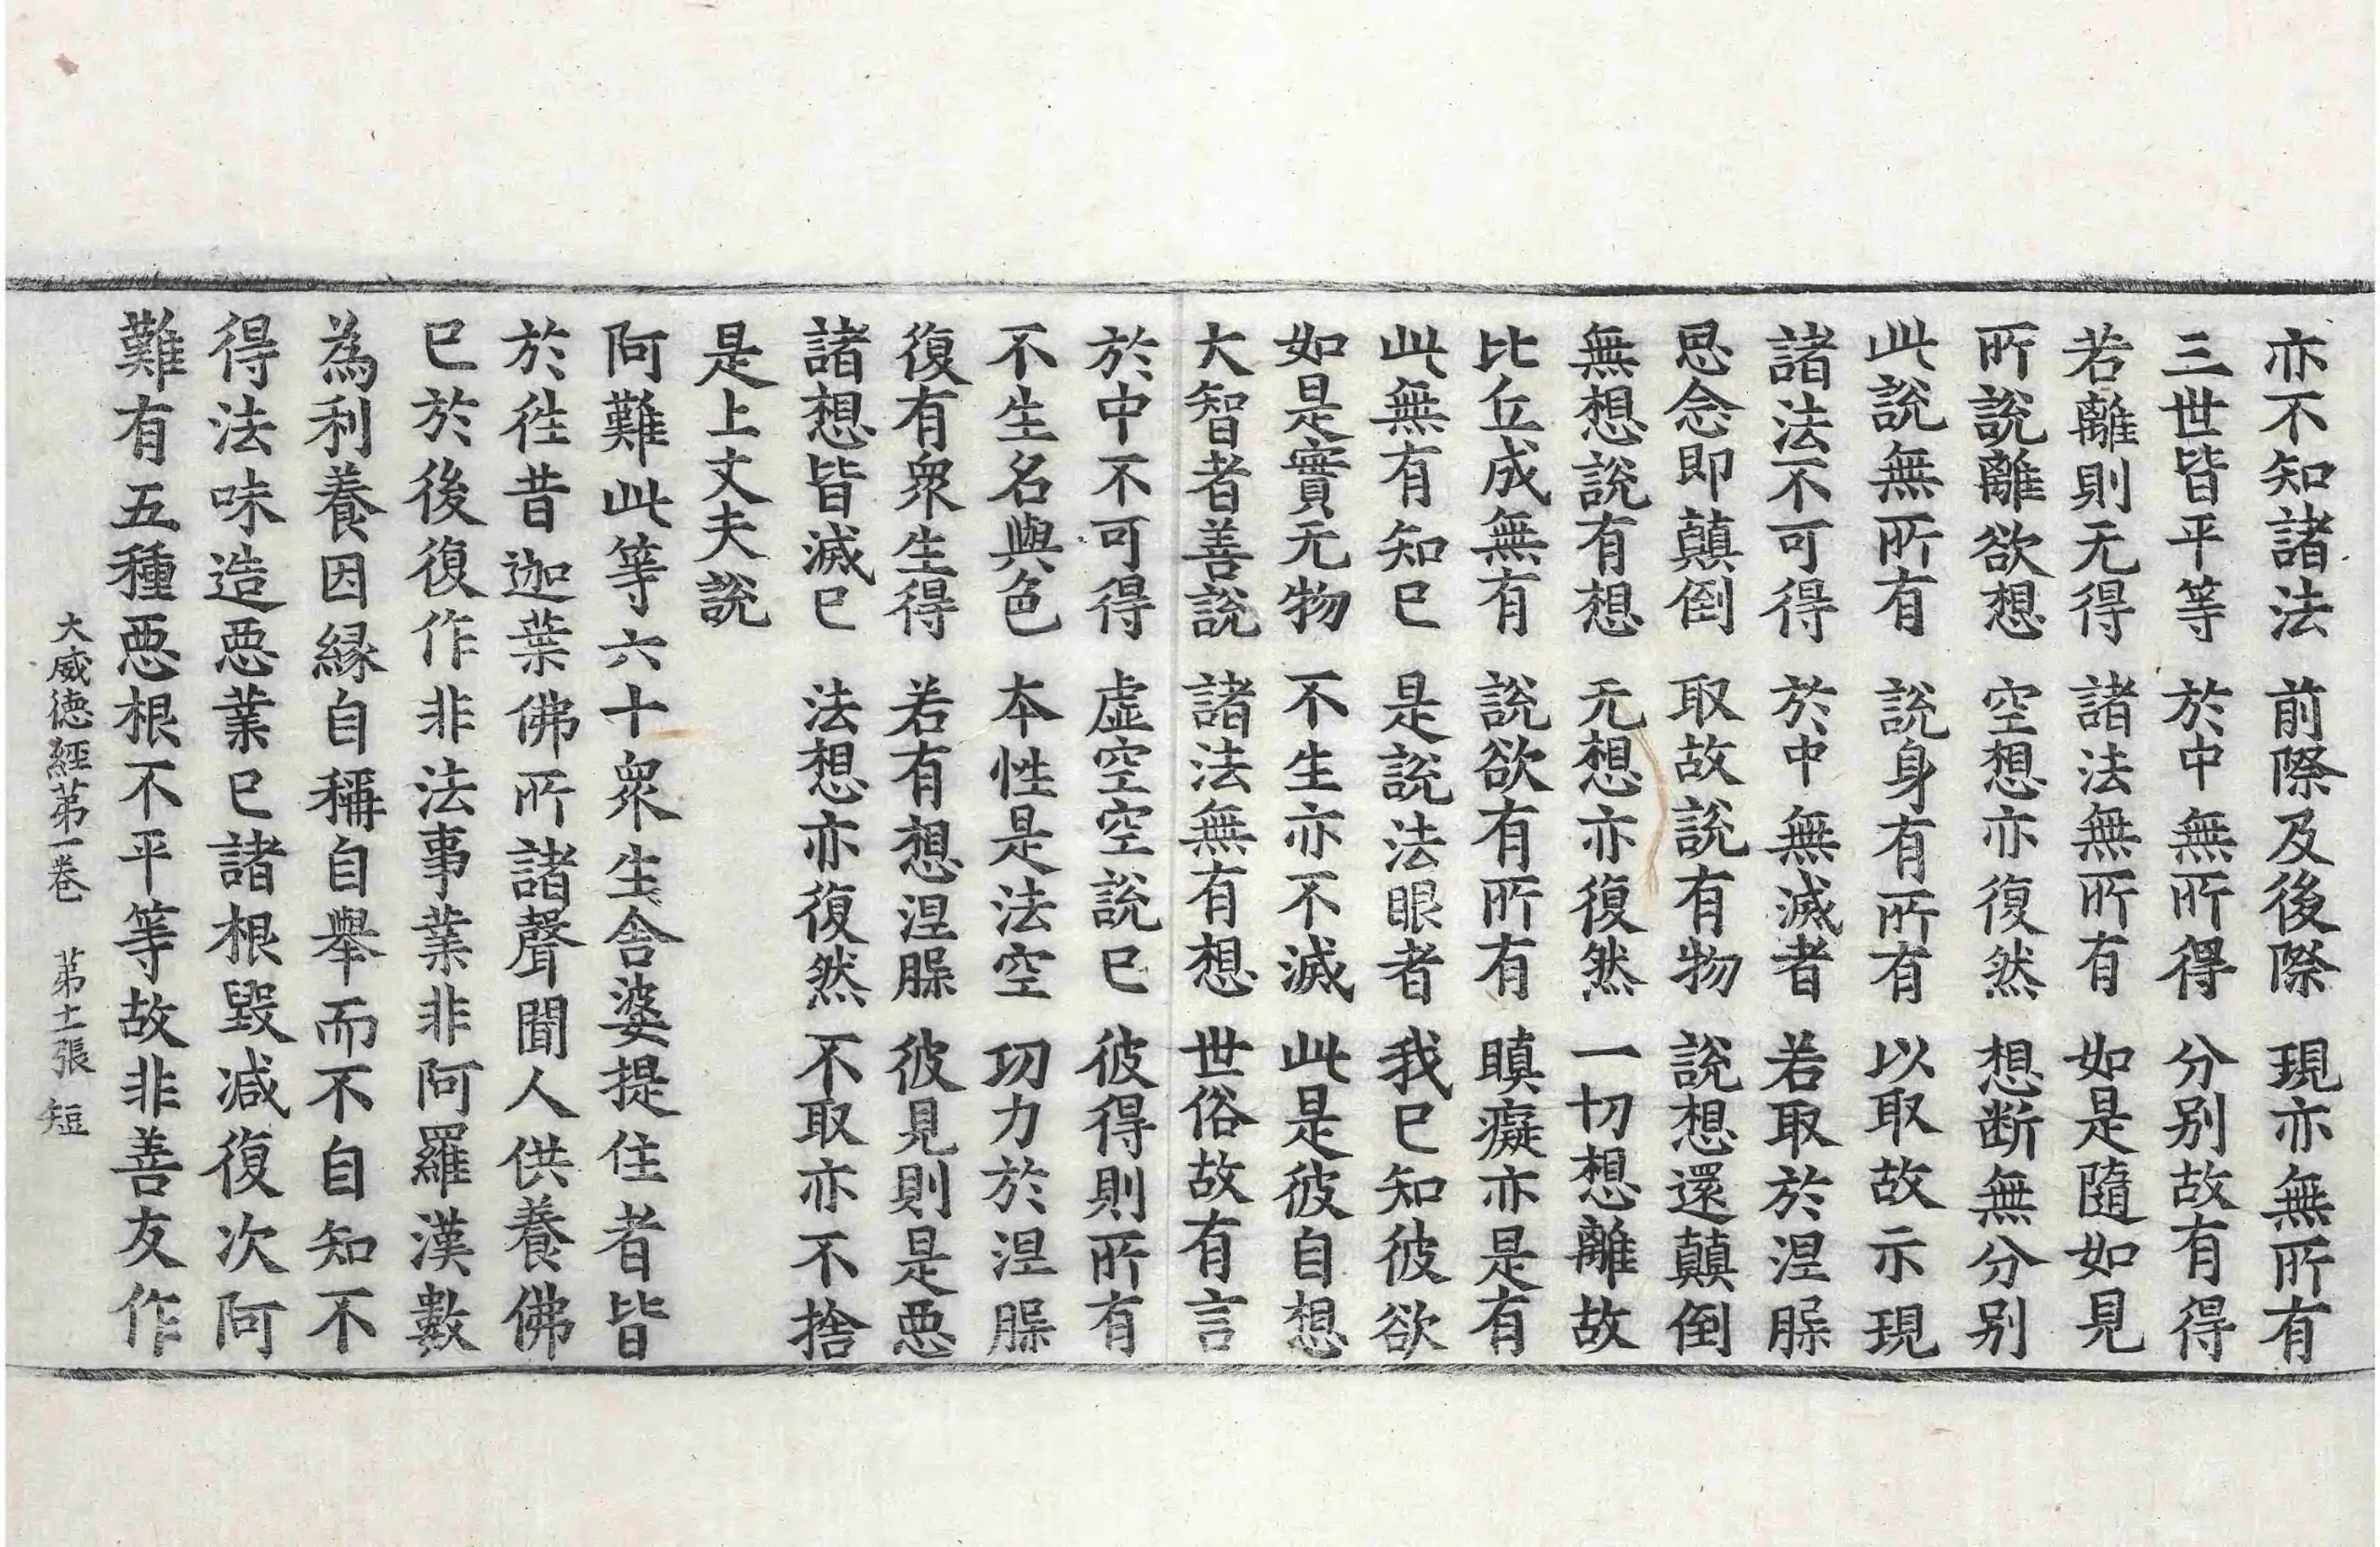 亦不知諸法　前際及後際　現亦無所有
三世皆平等　於中無所得　分别故有得
若離則无得　諸法無所有　如是隨如見
所說離欲想　空想亦復然　想断無分别
此說無所有　說身有所有　以取故示現
諸法不可得　於中無滅者　若取於涅槃
思念即顛倒　取故說有物　說想還顛倒
無想說有想　无想亦復然　一切想離故
比丘成無有　說欲有所有　瞋癡亦是有
此無有知已　是說法眼者　我已知彼欲
如是實无物　不生亦不滅　此是彼自想
大智者善說　諸法無有想　世俗故有言
於中不可得　虛空空說已　彼得則所有
不生名與色　本性是法空　功力於涅槃
復有衆生得　若有想涅槃　彼見則是惡
諸想皆滅已　法想亦復然　不取亦不捨
是上丈夫說
阿難此等六十衆生舍婆提住者皆
於往昔迦葉佛所諸聲聞人供養佛
已於後復作非法事業非阿羅漢數
為利養因縁自稱自舉而不自知不
得法味造惡業已諸根毀减復次阿
難有五種惡根不平等故非善友作
大威德經第一卷　第十一張　短